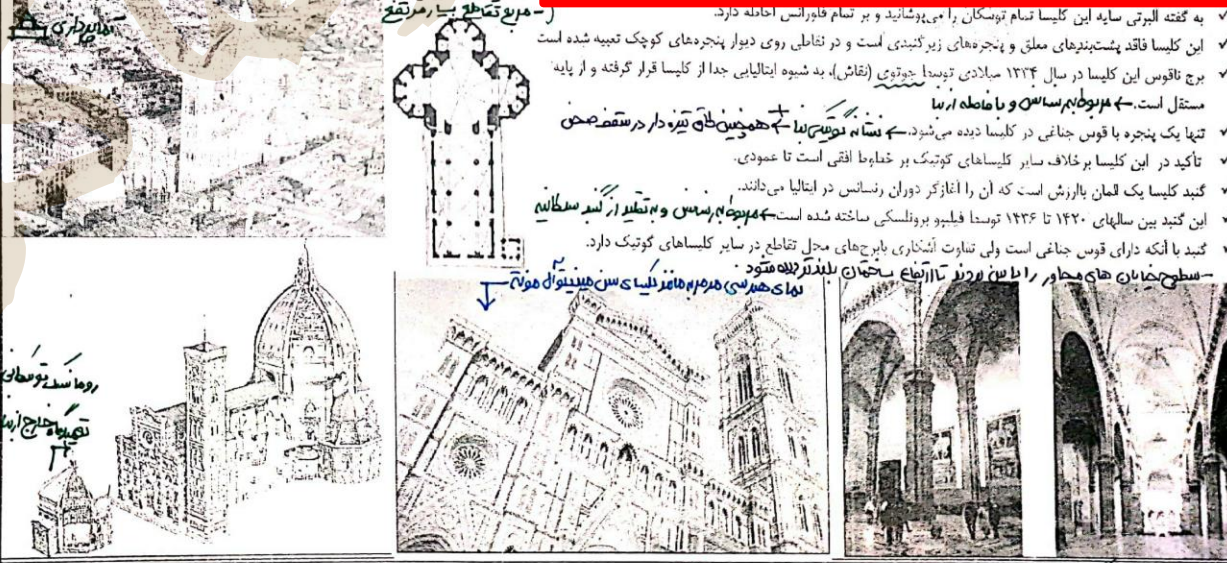 به گفته آلبرتی سایه این کلیسا تمام توسکان را می‌پوشانید و بر تمام فلورانس احاطه دارد.
این کلیسا فاقد پشت‌بندهای معلق و پنجره‌های زیرگنبدی است و در نقاطی روی دیوار پنجره‌های کوچک تعبیه شده است
برج ناقوس این کلیسا در سال ۱۳۳۴ میلادی توسط جوتوی (نقاش)، به شیوه ایتالیایی جدا از کلیسا قرار گرفته و از پایه
مستقل است. ← مربوط به رنسانس و با فاصله از بنا
تنها یک پنجره با قوس جناغی در کلیسا دیده می‌شود. ← نشانه گوتیکی بنا + همچنین طاق تیزه دار در سقف صحن
تأکید در این کلیسا برخلاف سایر کلیساهای گوتیک بر خطوط افقی است تا عمودی.
گنبد کلیسا یک المان باارزش است که آن را آغازگر دوران رنسانس در ایتالیا می‌دانند.
این گنبد بین سالهای ۱۴۲۰ تا ۱۴۳۶ توسط فیلیپو برونلسکی ساخته شده است. ← مربوط به رنسانس و به تقلید از گنبد سلطانیه
گنبد با آنکه دارای قوس جناغی است ولی تفاوت آشکاری بابرج‌های محل تقاطع در سایر کلیساهای گوتیک دارد.
- سطوح خیابان های مجاور را پایین بردند تا ارتفاع ساختمان بلندتر دیده شود.
- مربع تقاطع بسیار مرتفع
نمای هندسی مرمر مانند کلیسای سن مینیتو آل مونته
رومانسک توسکانی
تعمیدگاه خارج از بنا